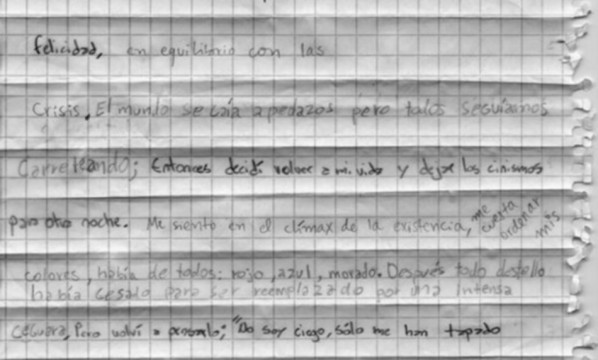 felicidad, en equilibrio con las
crisis. El mundo se caía a pedazos pero todos seguíamos
carreteando; Entonces decidí volver a mi vida y dejar los cinismos
para otra noche. Me siento en el clímax de la existencia, me cuesta ordenar mis
colores, había de todos: rojo, azul, morado. Después todo destello
había cesado para ser reemplazado por una intensa
ceguera, Pero volví a pensarlo; "No soy ciego, sólo me han tapado